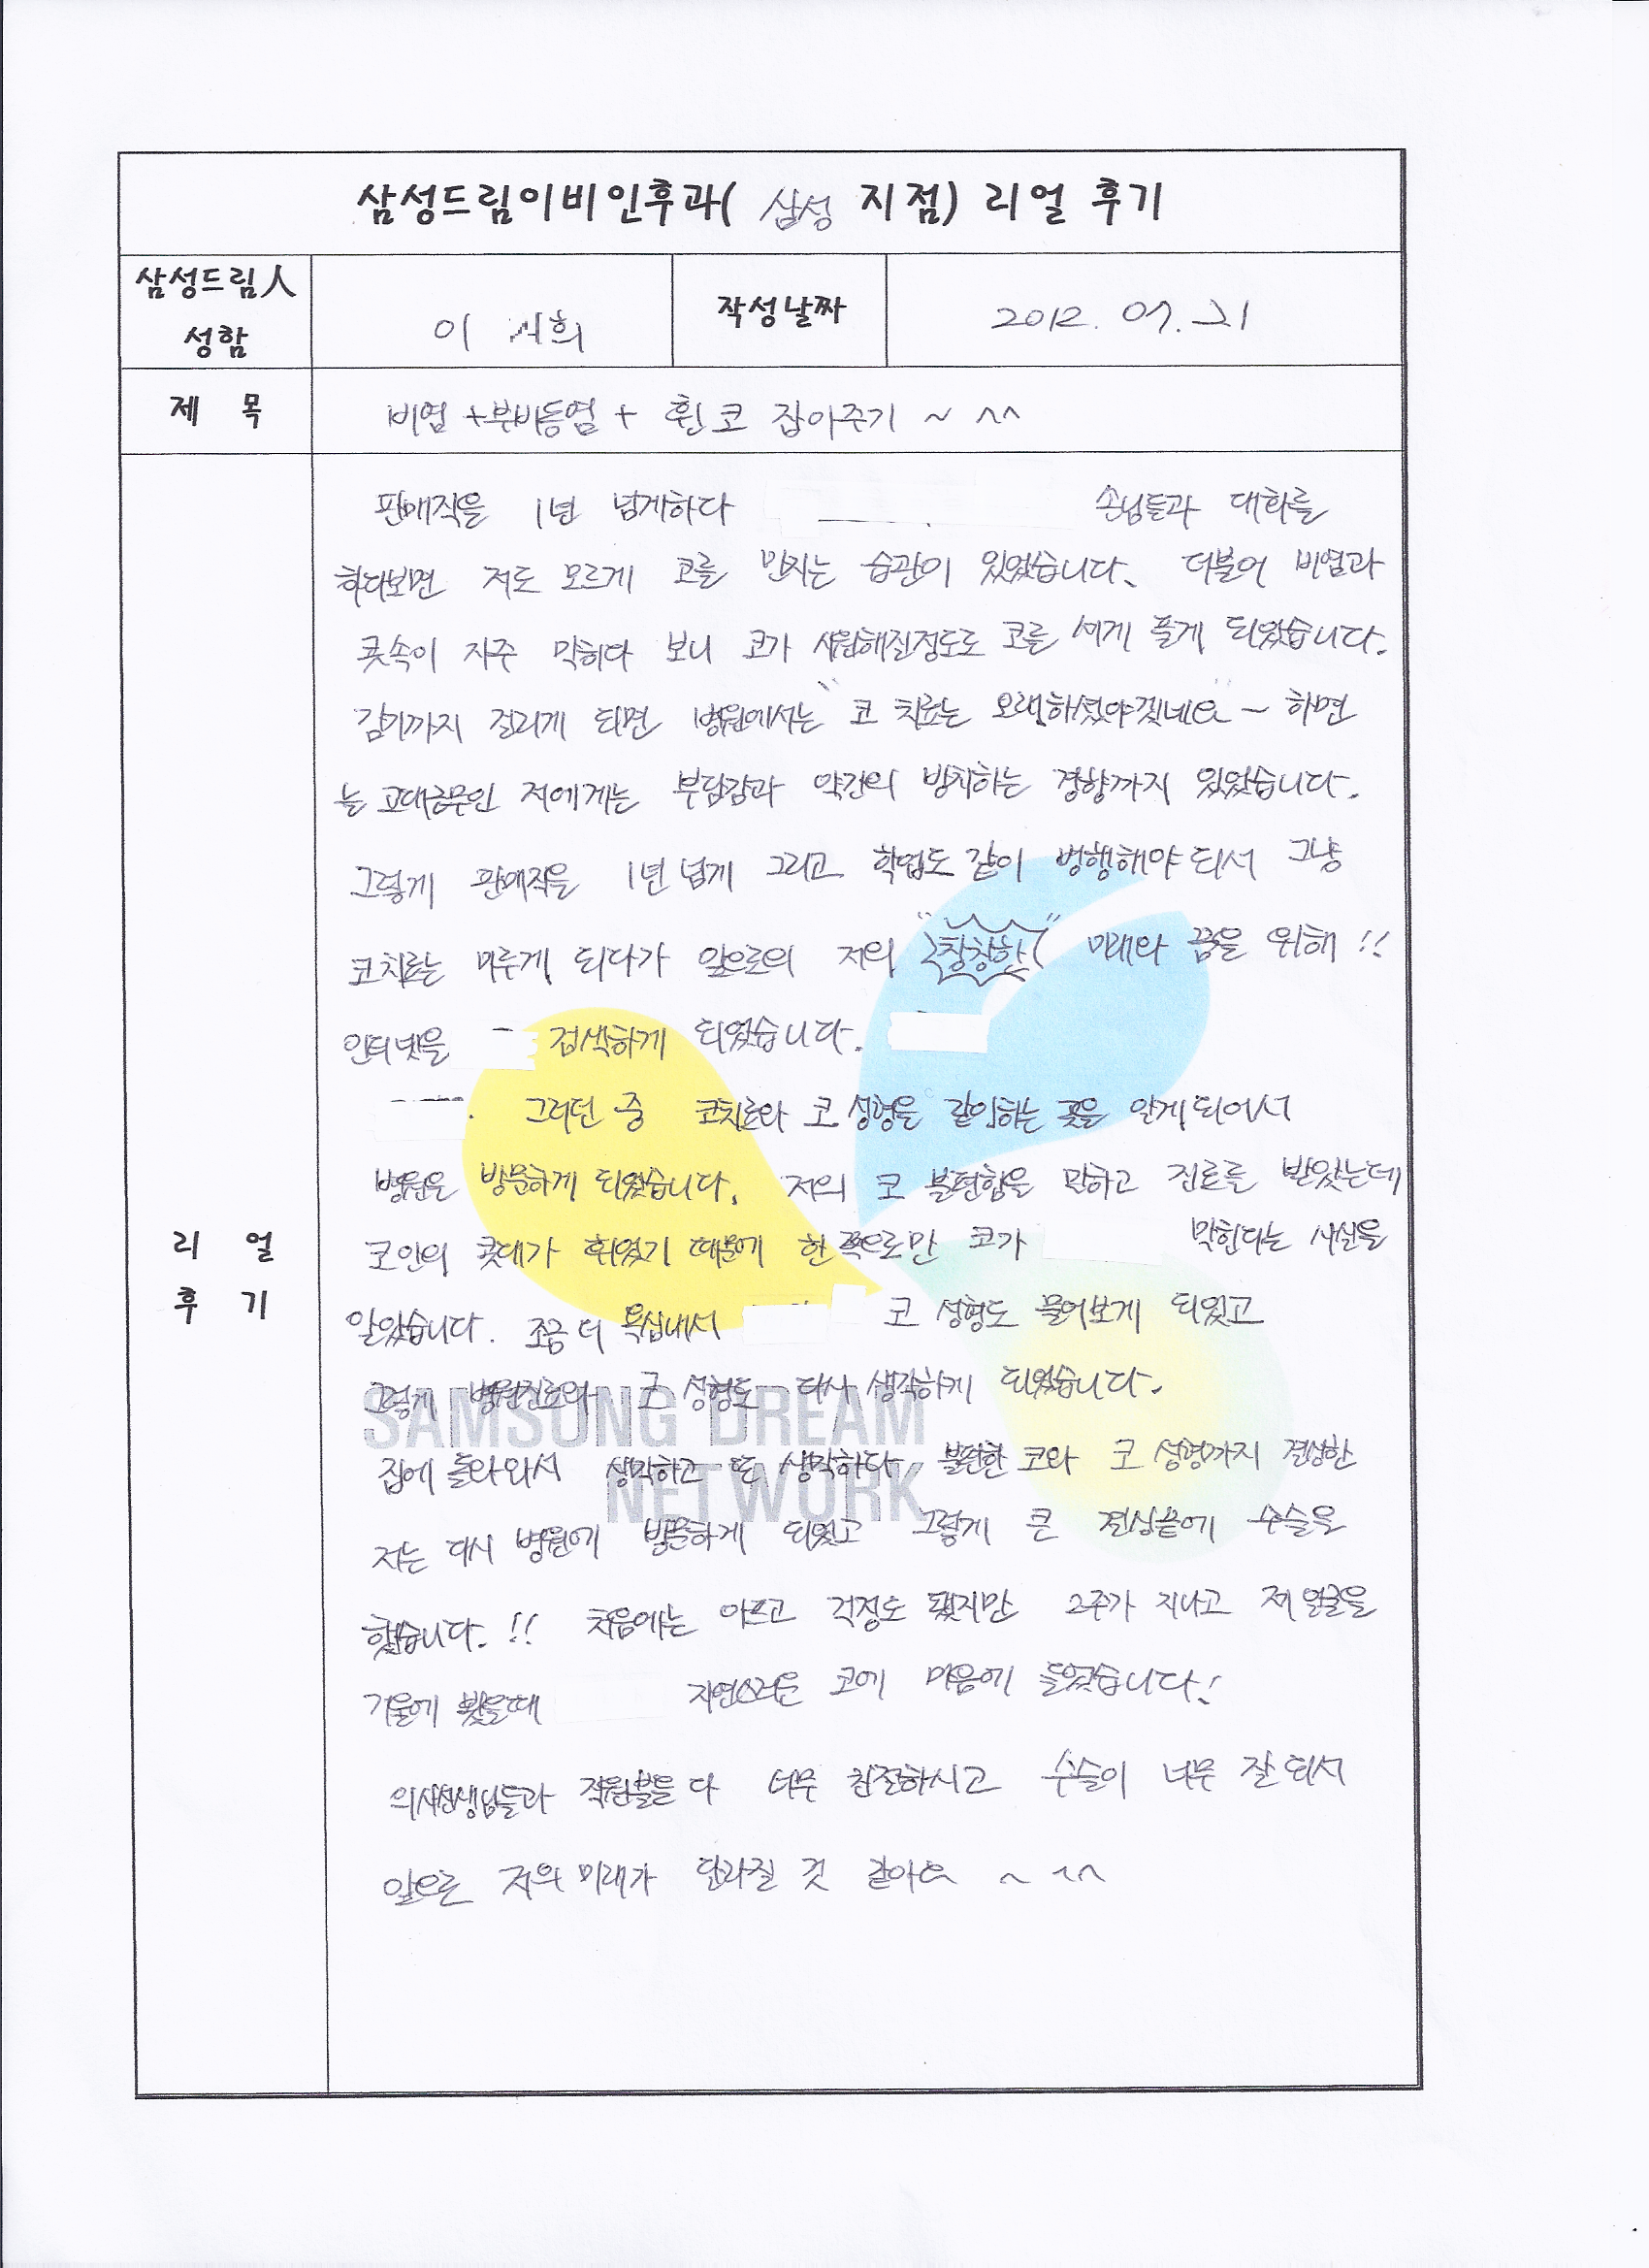 삼성드림이비인후과( 삼성 지점) 리얼 후기
삼성드림人
성함
이 희
작성날짜
2012. 07. 21
제 목
비염 +부비동염 + 휜 코 잡아주기 ~ ^^
판매직을 1년 넘게하다 손님들과 대화를
하다보면 저도 모르게 코를 만지는 습관이 있었습니다. 더불어 비염과
콧속이 자주 막히다 보니 코가 시원해질정도로 코를 세게 풀게 되었습니다.
감기까지 걸리게 되면 병원에서는 "코 치료는 오래하셨야겠네요" ~ 하면
늘 고대근무인 저에게는 부담감과 약간의 방치하는 경향까지 있었습니다.
그렇게 판매직을 1년 넘게 그리고 학업도 같이 병행해야 되서 그냥
코치료는 미루게 되다가 앞으로의 저의 "창창한" 미래와 꿈을 위해 !!
인터넷을 검색하게 되었습니다.
그러던 중 코치료와 코 성형을 같이하는 곳을 알게되어서
병원은 방문하게 되었습니다. 저의 코 불편함을 말하고 진료를 받았는데
코안의 콧대가 휘었기 때문에 한쪽으로만 코가 막힌다는 사실을
알았습니다. 조금 더 욕심내서 코 성형도 물어보게 되었고
그렇게 병원진료와 코 성형도 다시 생각하게 되었습니다.
SAMSUNG DREAM
집에 돌아와서 생각하고 또 생각하다 불편한 코와 코 성형까지 결심한
NETWORK
저는 다시 병원에 방문하게 되었고 그렇게 큰 결심끝에 수술을
리 얼
후 기
했습니다. !! 처음에는 아프고 걱정도 됐지만 2주가 지나고 제 얼굴을
거울에 봤을때 자연스러운 코에 마음에 들었습니다!
의사선생님들과 직원분들 다 너무 친절하시고 수술이 너무 잘 되서
앞으론 저의 미래가 달라질 것 같아요 ~ ^^